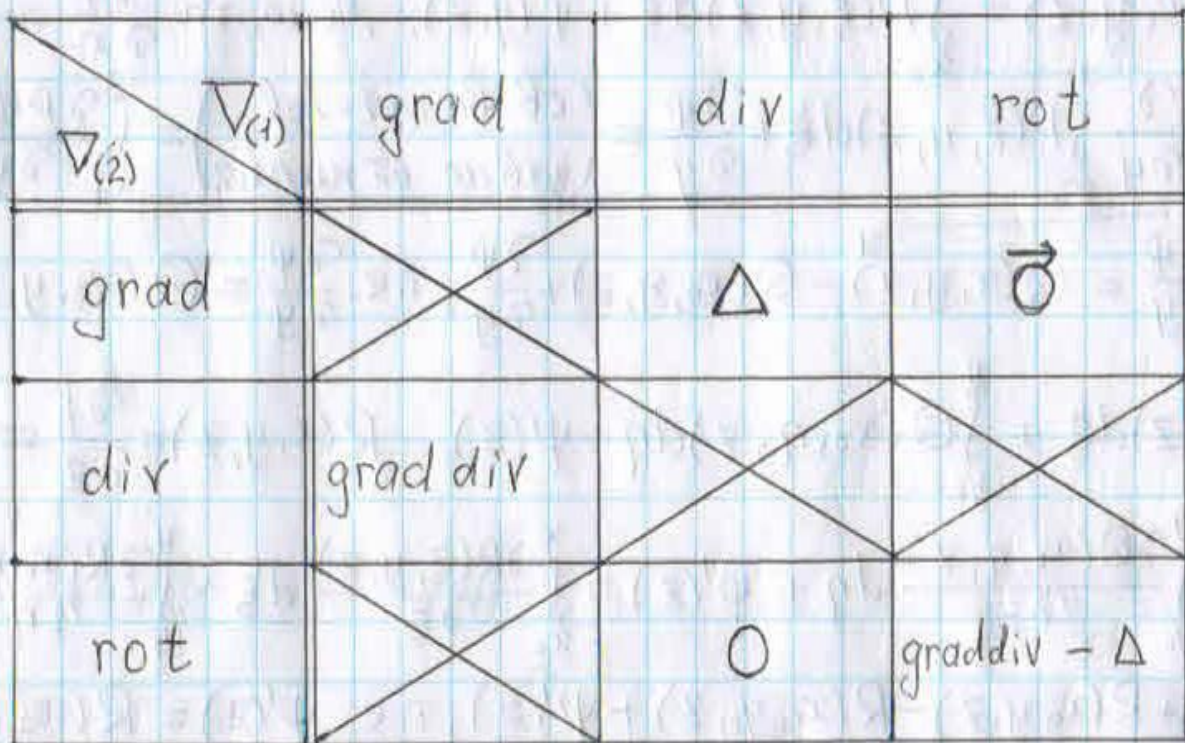 ∇(1) grad div rot
∇(2)
grad Δ \vec{O}
div grad div
rot O graddiv - Δ